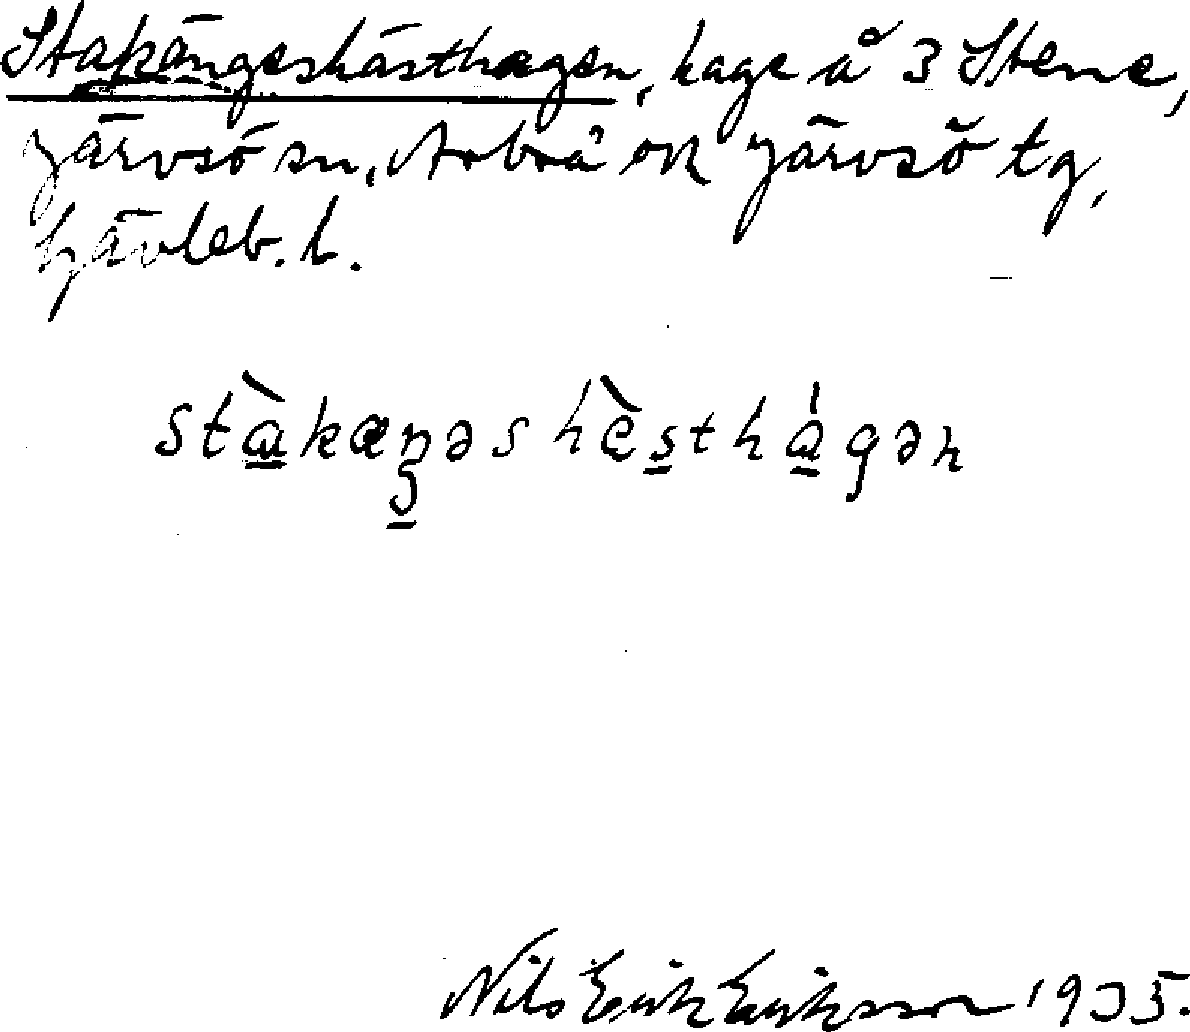 Stakängeshästhagen, hage å 3 Stene,
Järvsö sn, Arbrå ok Järvsö tg,
Gävleb. l.
stàkæŋəs hèsthágən
Nils Erik Eriksson 1935.